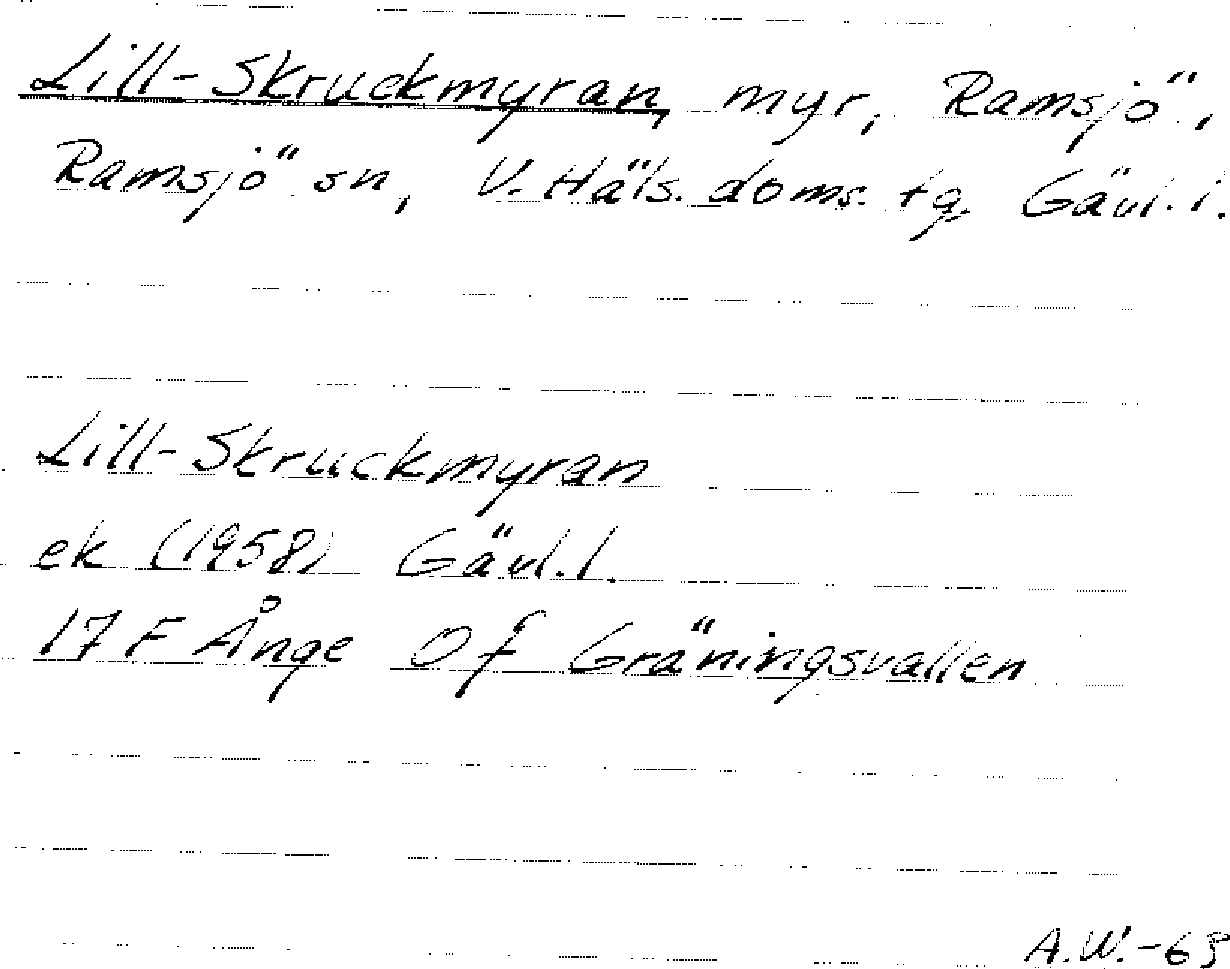 Lill-Skruckmyran, myr, Ramsjö,
Ramsjö sn, V. Häls. doms. tg. Gävl. l.
Lill-Skruckmyran
ek (1958) Gävl. l.
17 F Ånge 0 f Gräningsvallen
A.W.-63